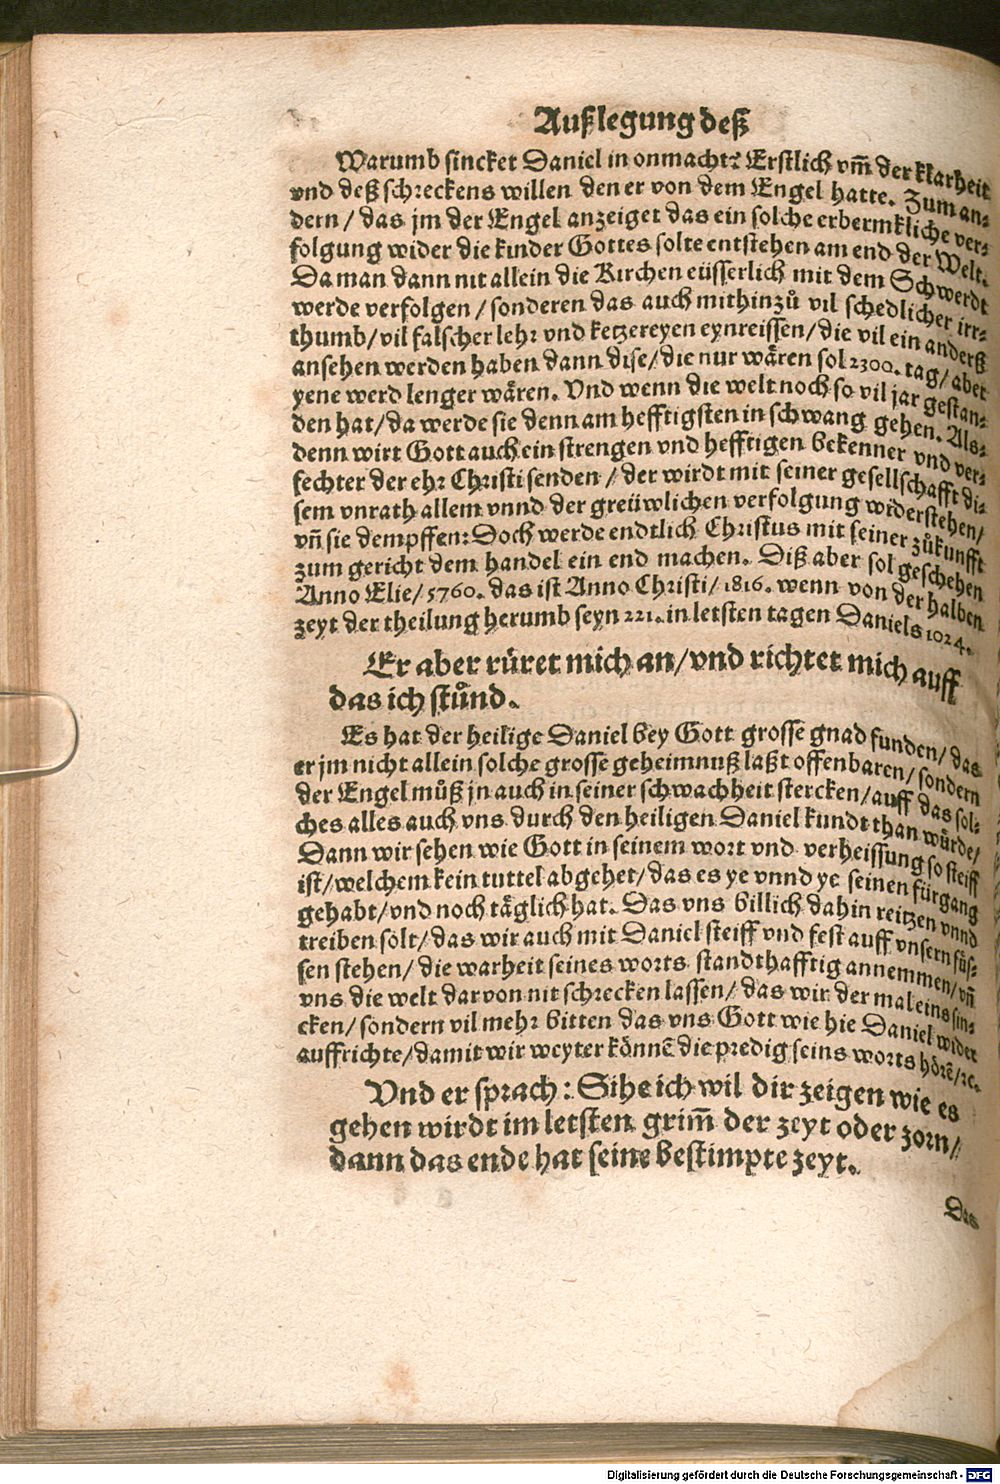 Außlegung deß
Warumb sincket Daniel in onmacht? Erstlich vm̃ der klarheit
vnd deß schreckens willen den er von dem Engel hatte. Zum an-
dern / das jm der Engel anzeiget das ein solche erbermkliche ver-
folgung wider die kinder Gottes solte entstehen am end der Welt.
Da man dann nit allein die Kirchen eüsserlich mit dem Schwerdt
werde verfolgen / sonderen das auch mithinzů vil schedlicher irr-
thumb/ vil falscher lehr vnd ketzereyen eynreissen/ die vil ein anderß
ansehen werden haben dann dise/ die nur wären sol 2300. tag/ aber
yene werd lenger wären. Vnd wenn die welt noch so vil jar gestan-
den hat/ da werde sie denn am hefftigsten in schwang gehen. Als-
denn wirt Gott auch ein strengen vnd hefftigen bekenner vnd ver-
fechter der ehr Christi senden / der wirdt mit seiner gesellschafft di-
sem vnrath allem vnnd der greüwlichen verfolgung widerstehen/
vñ sie dempffen: Doch werde endtlich Christus mit seiner zůkunfft
zum gericht dem handel ein end machen. Diß aber sol geschehen
Anno Elie/ 5760. das ist Anno Christi/ 1816. wenn von der halben
zeyt der theilung herumb seyn 221. in letsten tagen Daniels 1024.
Er aber růret mich an/ vnd richtet mich auff
das ich stůnd.
Es hat der heilige Daniel bey Gott grosse gnad funden/ das
er jm nicht allein solche grosse geheimnuß laßt offenbaren/ sondern
der Engel můß jn auch in seiner schwachheit stercken/ auff das sol-
ches alles auch vns durch den heiligen Daniel kundt than würde/
Dann wir sehen wie Gott in seinem wort vnd verheissung so steiff
ist/ welchem kein tuttel abgehet/ das es ye vnnd ye seinen fürgang
gehabt/ vnd noch täglich hat. Das vns billich dahin reitzen vnnd
treiben solt/ das wir auch mit Daniel steiff vnd fest auff vnsern füs-
sen stehen/ die warheit seines worts standthafftig annemmen/ vñ
vns die welt darvon nit schrecken lassen/ das wir der mal eins sin-
cken/ sondern vil mehr bitten das vns Gott wie hie Daniel wider
auffrichte/ damit wir weyter könnē die predig seins worts hörē/ ꝛc.
Vnd er sprach: Sihe ich wil dir zeigen wie es
gehen wirdt im letsten grim̃ der zeyt oder zorn/
dann das ende hat seine bestimpte zeyt.
Das
Digitalisierung gefördert durch die Deutsche Forschungsgemeinschaft - DFG